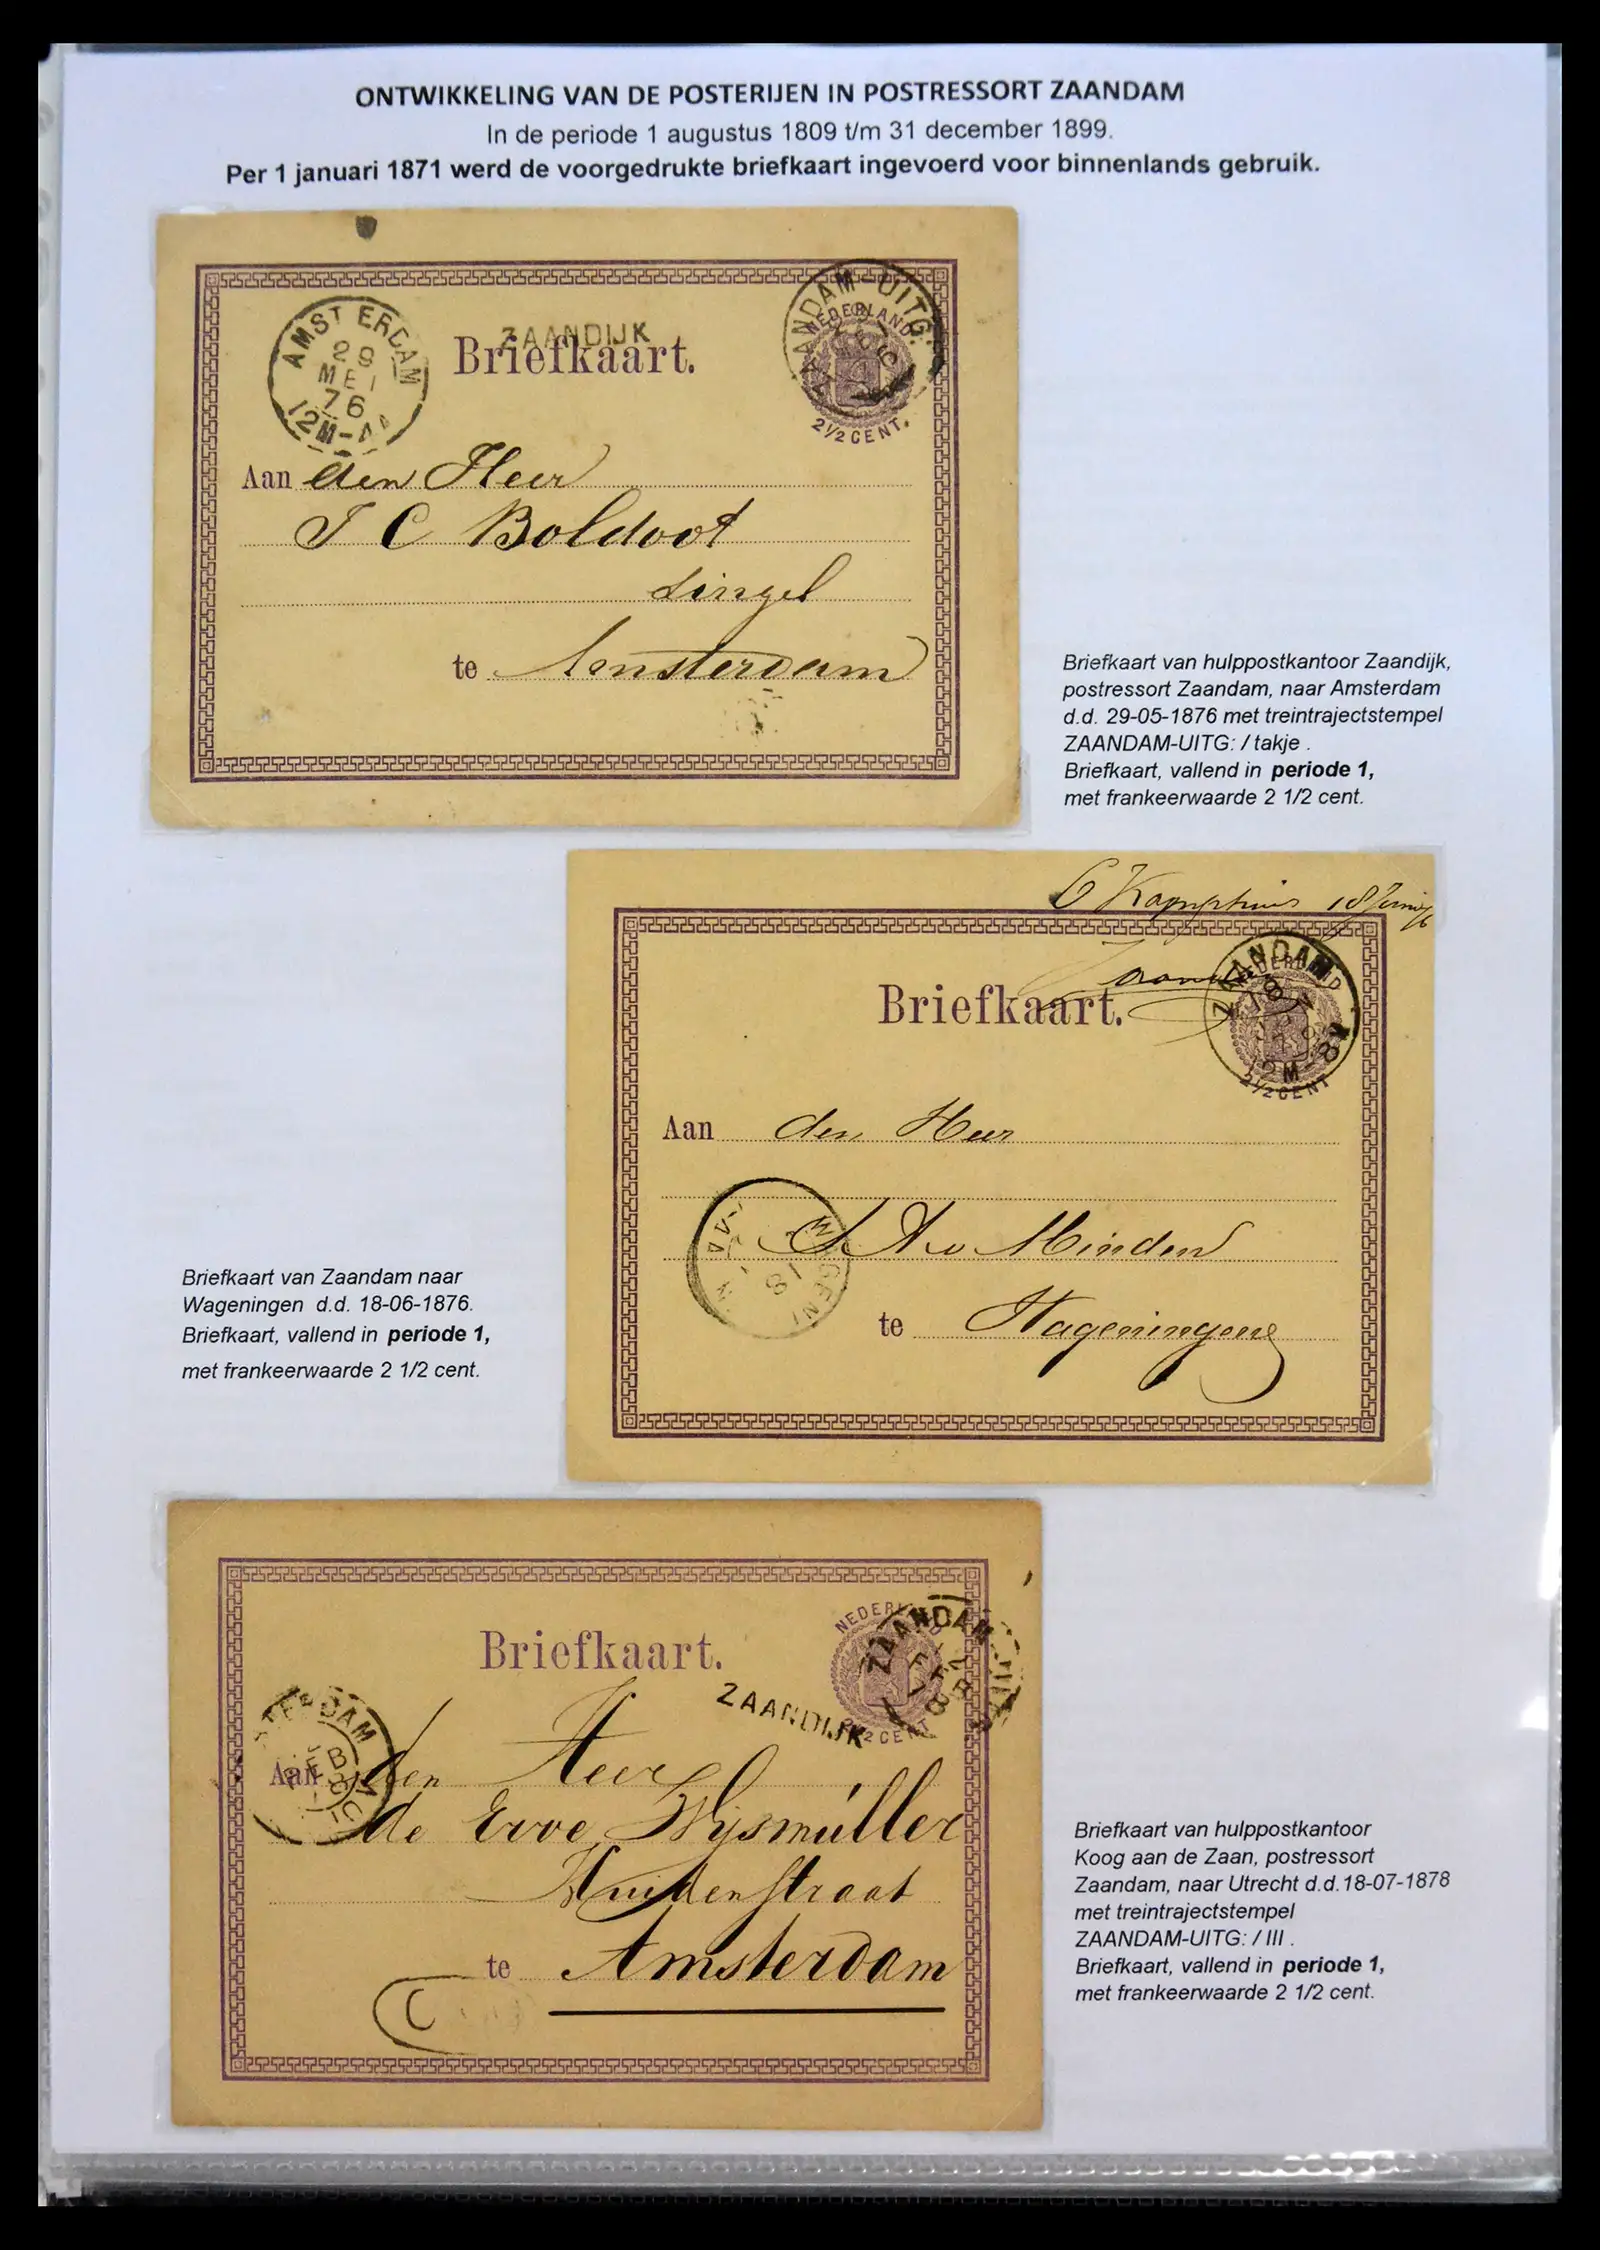 ONTWIKKELING VAN DE POSTERIJEN IN POSTRESSORT ZAANDAM
In de periode 1 augustus 1809 t/m 31 december 1899.
Per 1 januari 1871 werd de voorgedrukte briefkaart ingevoerd voor binnenlands gebruik.
AMSTERDAM
29
MEI
76
12M-
ZAANDIJK
Briefkaart.
ZAANDAM-UITG:
NEDERLAND
2½ CENT.
Aan den Heer
J C Boldoot
Singel
te Amsterdam
Briefkaart van hulppostkantoor Zaandijk,
postressort Zaandam, naar Amsterdam
d.d. 29-05-1876 met treintrajectstempel
ZAANDAM-UITG: / takje .
Briefkaart, vallend in periode 1,
met frankeerwaarde 2 1/2 cent.
18 Juni 76
Briefkaart.
ZAANDAM
2½ CENT
Aan den Heer
Minden
te Wageningen
WAGENI
18
Briefkaart van Zaandam naar
Wageningen d.d. 18-06-1876.
Briefkaart, vallend in periode 1,
met frankeerwaarde 2 1/2 cent.
Briefkaart.
NEDERL
ZAANDAM
FEB
ZAANDIJK
2½ CENT
TERDAM
FEB
Aan den Heer
de Erve Wijsmüller
Huidenstraat
te Amsterdam
C
Briefkaart van hulppostkantoor
Koog aan de Zaan, postressort
Zaandam, naar Utrecht d.d.18-07-1878
met treintrajectstempel
ZAANDAM-UITG: / III .
Briefkaart, vallend in periode 1,
met frankeerwaarde 2 1/2 cent.